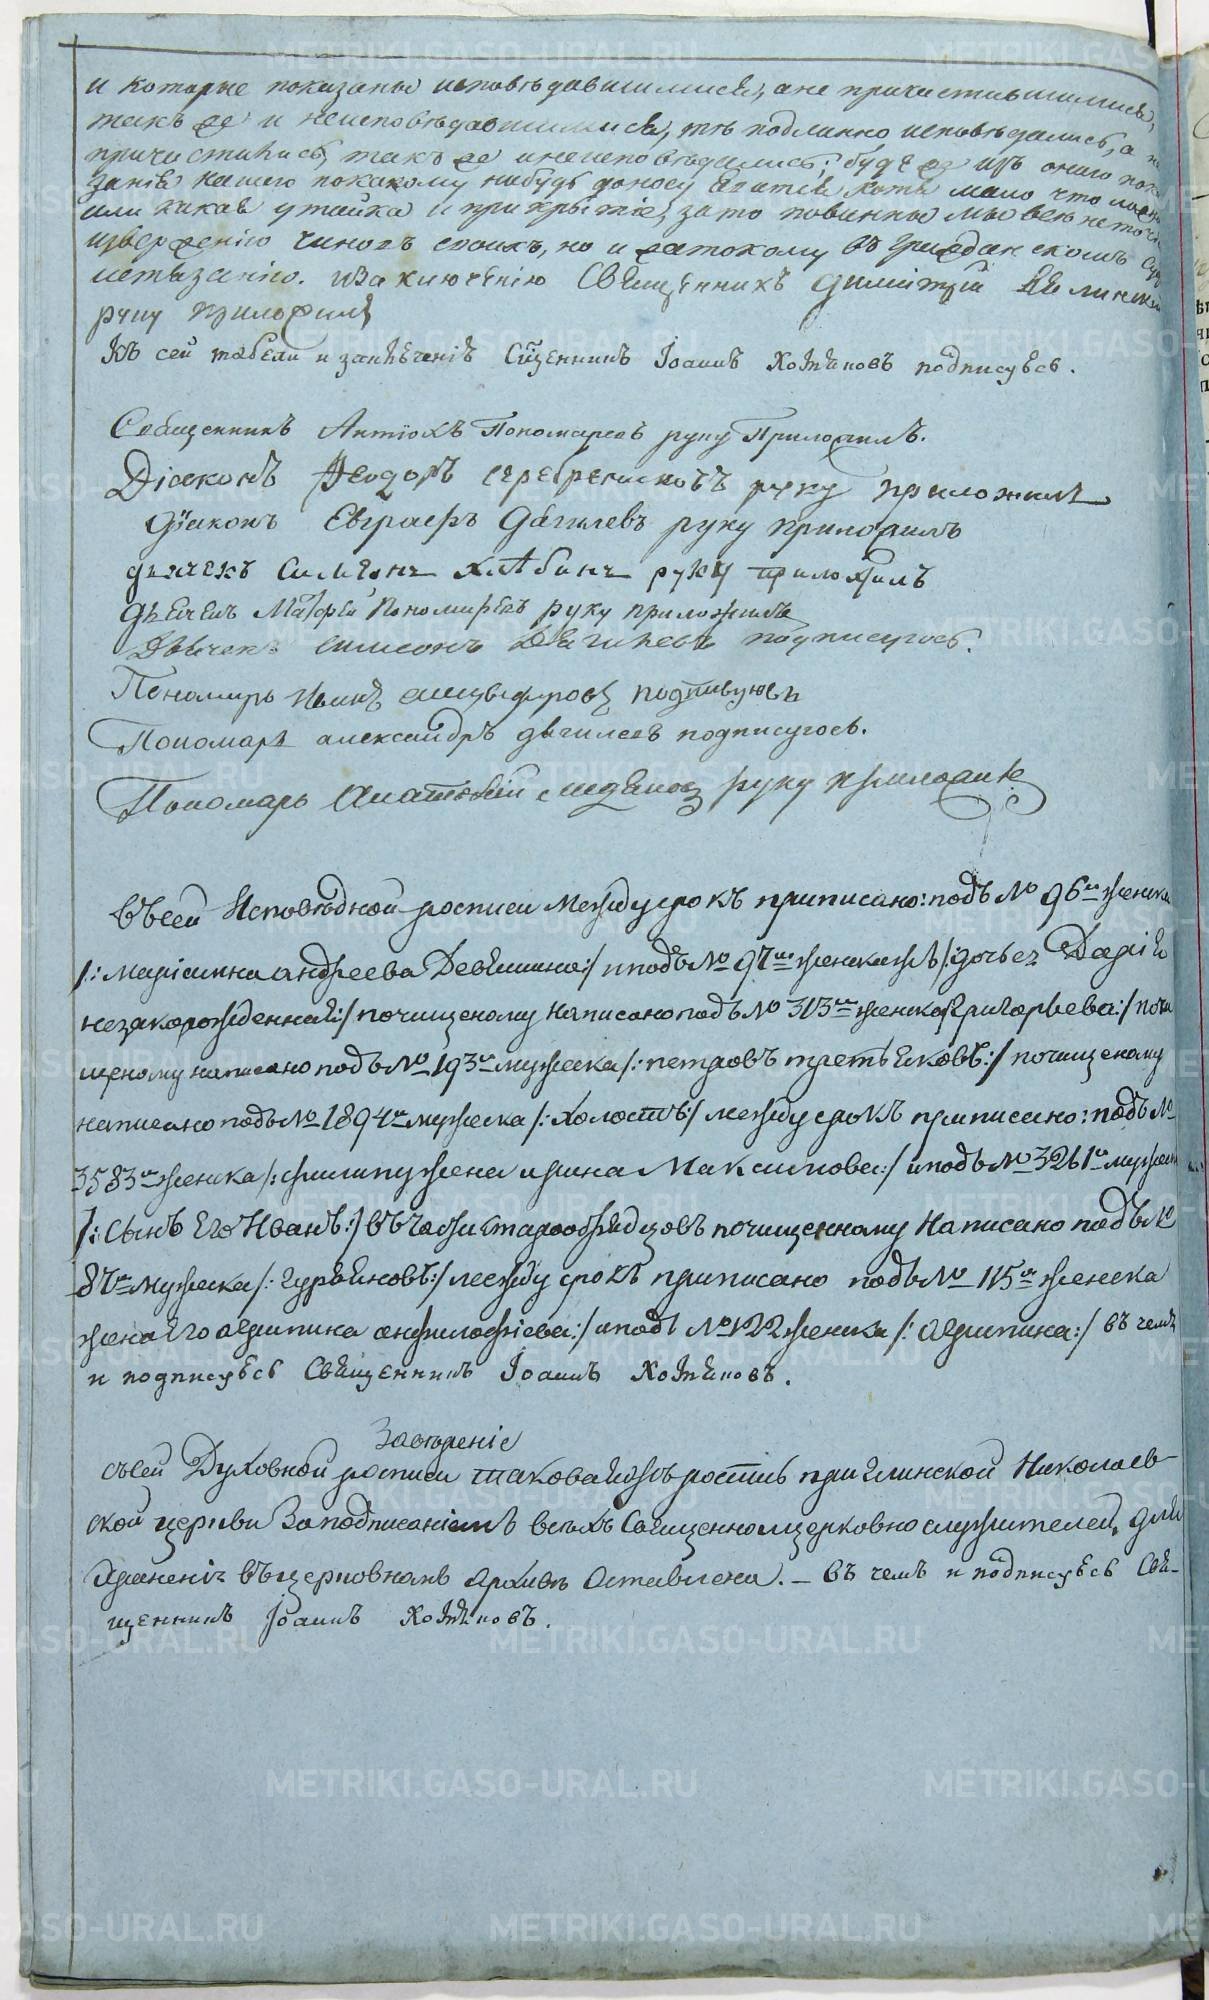 и которые показаны исповѣдавшимися, а не причастившимися,
такъ же и неисповѣдавшимися, тѣ подлинно исповѣдались, а не
причастились, такъ же и неисповѣдались; буде же изъ оного пока
занія нашего по какому нибудь доносу явится хоть мало что ложно
или какая утайка и прикрытіе, за то повинны мы
изверженію чиновъ своихъ, но и жестокому въ гражданскомъ суде
истязанію. Священникъ Димитрій
руку приложилъ
Къ сей табели и Сщенникъ Іоаннъ Хотяновъ подписуюсь.
Священникъ Антіохъ Пономаревъ руку Приложилъ.
Діяконъ Феодоръ Серебрениковъ руку приложилъ
Діаконъ Евграфъ Дягилевъ руку приложилъ
дьячекъ Симеонъ Хлѣбинъ руку приложилъ
дьячекъ Матфей Пономаревъ руку приложилъ
Дьячекъ Симеонъ Дягилевъ подписуюсь.
Пономарь подписуюсь
Пономарь александръ дягилевъ подписуюсь.
Пономарь руку приложилъ
Въ сей Исповѣдной росписи между срокъ приписано: подъ № 96мъ женска
/: Маріамна андреева Девяшина:/ и подъ № 97мъ женска жъ /: дочь ея Дарія
незаконорожденная:/ почищеному написано подъ № 313мъ женска /:Григорьева:/ почи
щеному написано подъ № 193мъ мужеска /: петровъ третьяковъ:/ почищеному
написано подъ № 1894мъ мужеска /: холостъ:/ между срокъ приписано: подъ №
3583мъ женска /: филипу жена ирина Максимова:/ и подъ № 3261мъ мужеска
/: Сынъ Его Иванъ:/ въ части старообрядцовъ почищенному Написано подъ №
87мъ мужеска /: гурьяновъ:/ между срокъ приписано подъ № 115мъ женска
жена Его агрипина анфилофіева:/ и подъ № 122 женска /: агрипина:/ въ чемъ
и подписуюсь Священникъ Іоаннъ Хотяновъ.
Завѣреніе
Съ сей Духовной росписи таковая жъ роспись при Николаев
ской церкви За подписаніемъ всѣхъ Священноицерковнослужителей, для
храненія въ церковномъ архивѣ Оставлена. — въ чемъ и подписуюсь Свя-
щенникъ Іоаннъ Хотяновъ.
METRIKI.GASO-URAL.RU